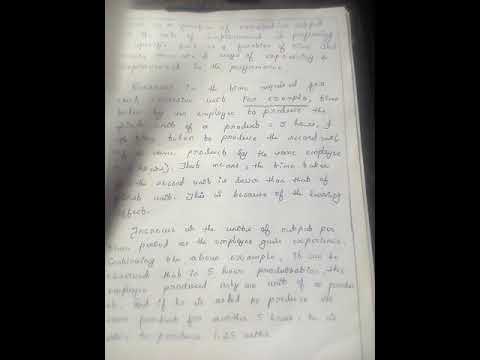 is a function of cumulative output
the rate of improvement in performing
a specific task is a function of time and
ways of expressing to
improvement in the performance.
Decrease in the time required for
each successive unit. For example, time
taken by an employee to produce the
first unit of a product = 5 hours, &
the time taken to produce the second unit
of the same product by the same employee
hours). That means, the time taken
the second unit is lower than that of
unit. This is because of the learning
effect.
Increase in the units of output per
time period as the employee gains experience.
Continuing the above example, it can be
observed that in 5 hour production, the
employee produced only one unit of a produ
ct. And if he is asked to produce the
same product for another 5 hours, he is
to produce 1.25 units